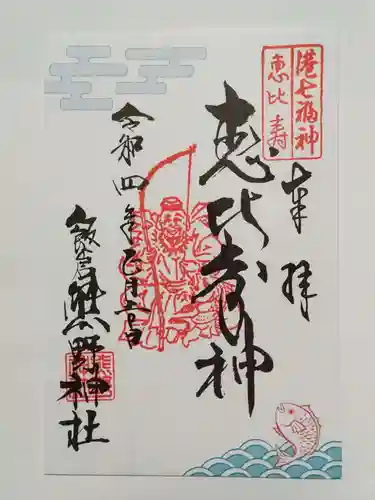 港七福神
恵比寿
奉拝
恵比寿神
令和四年
飯倉熊野神社